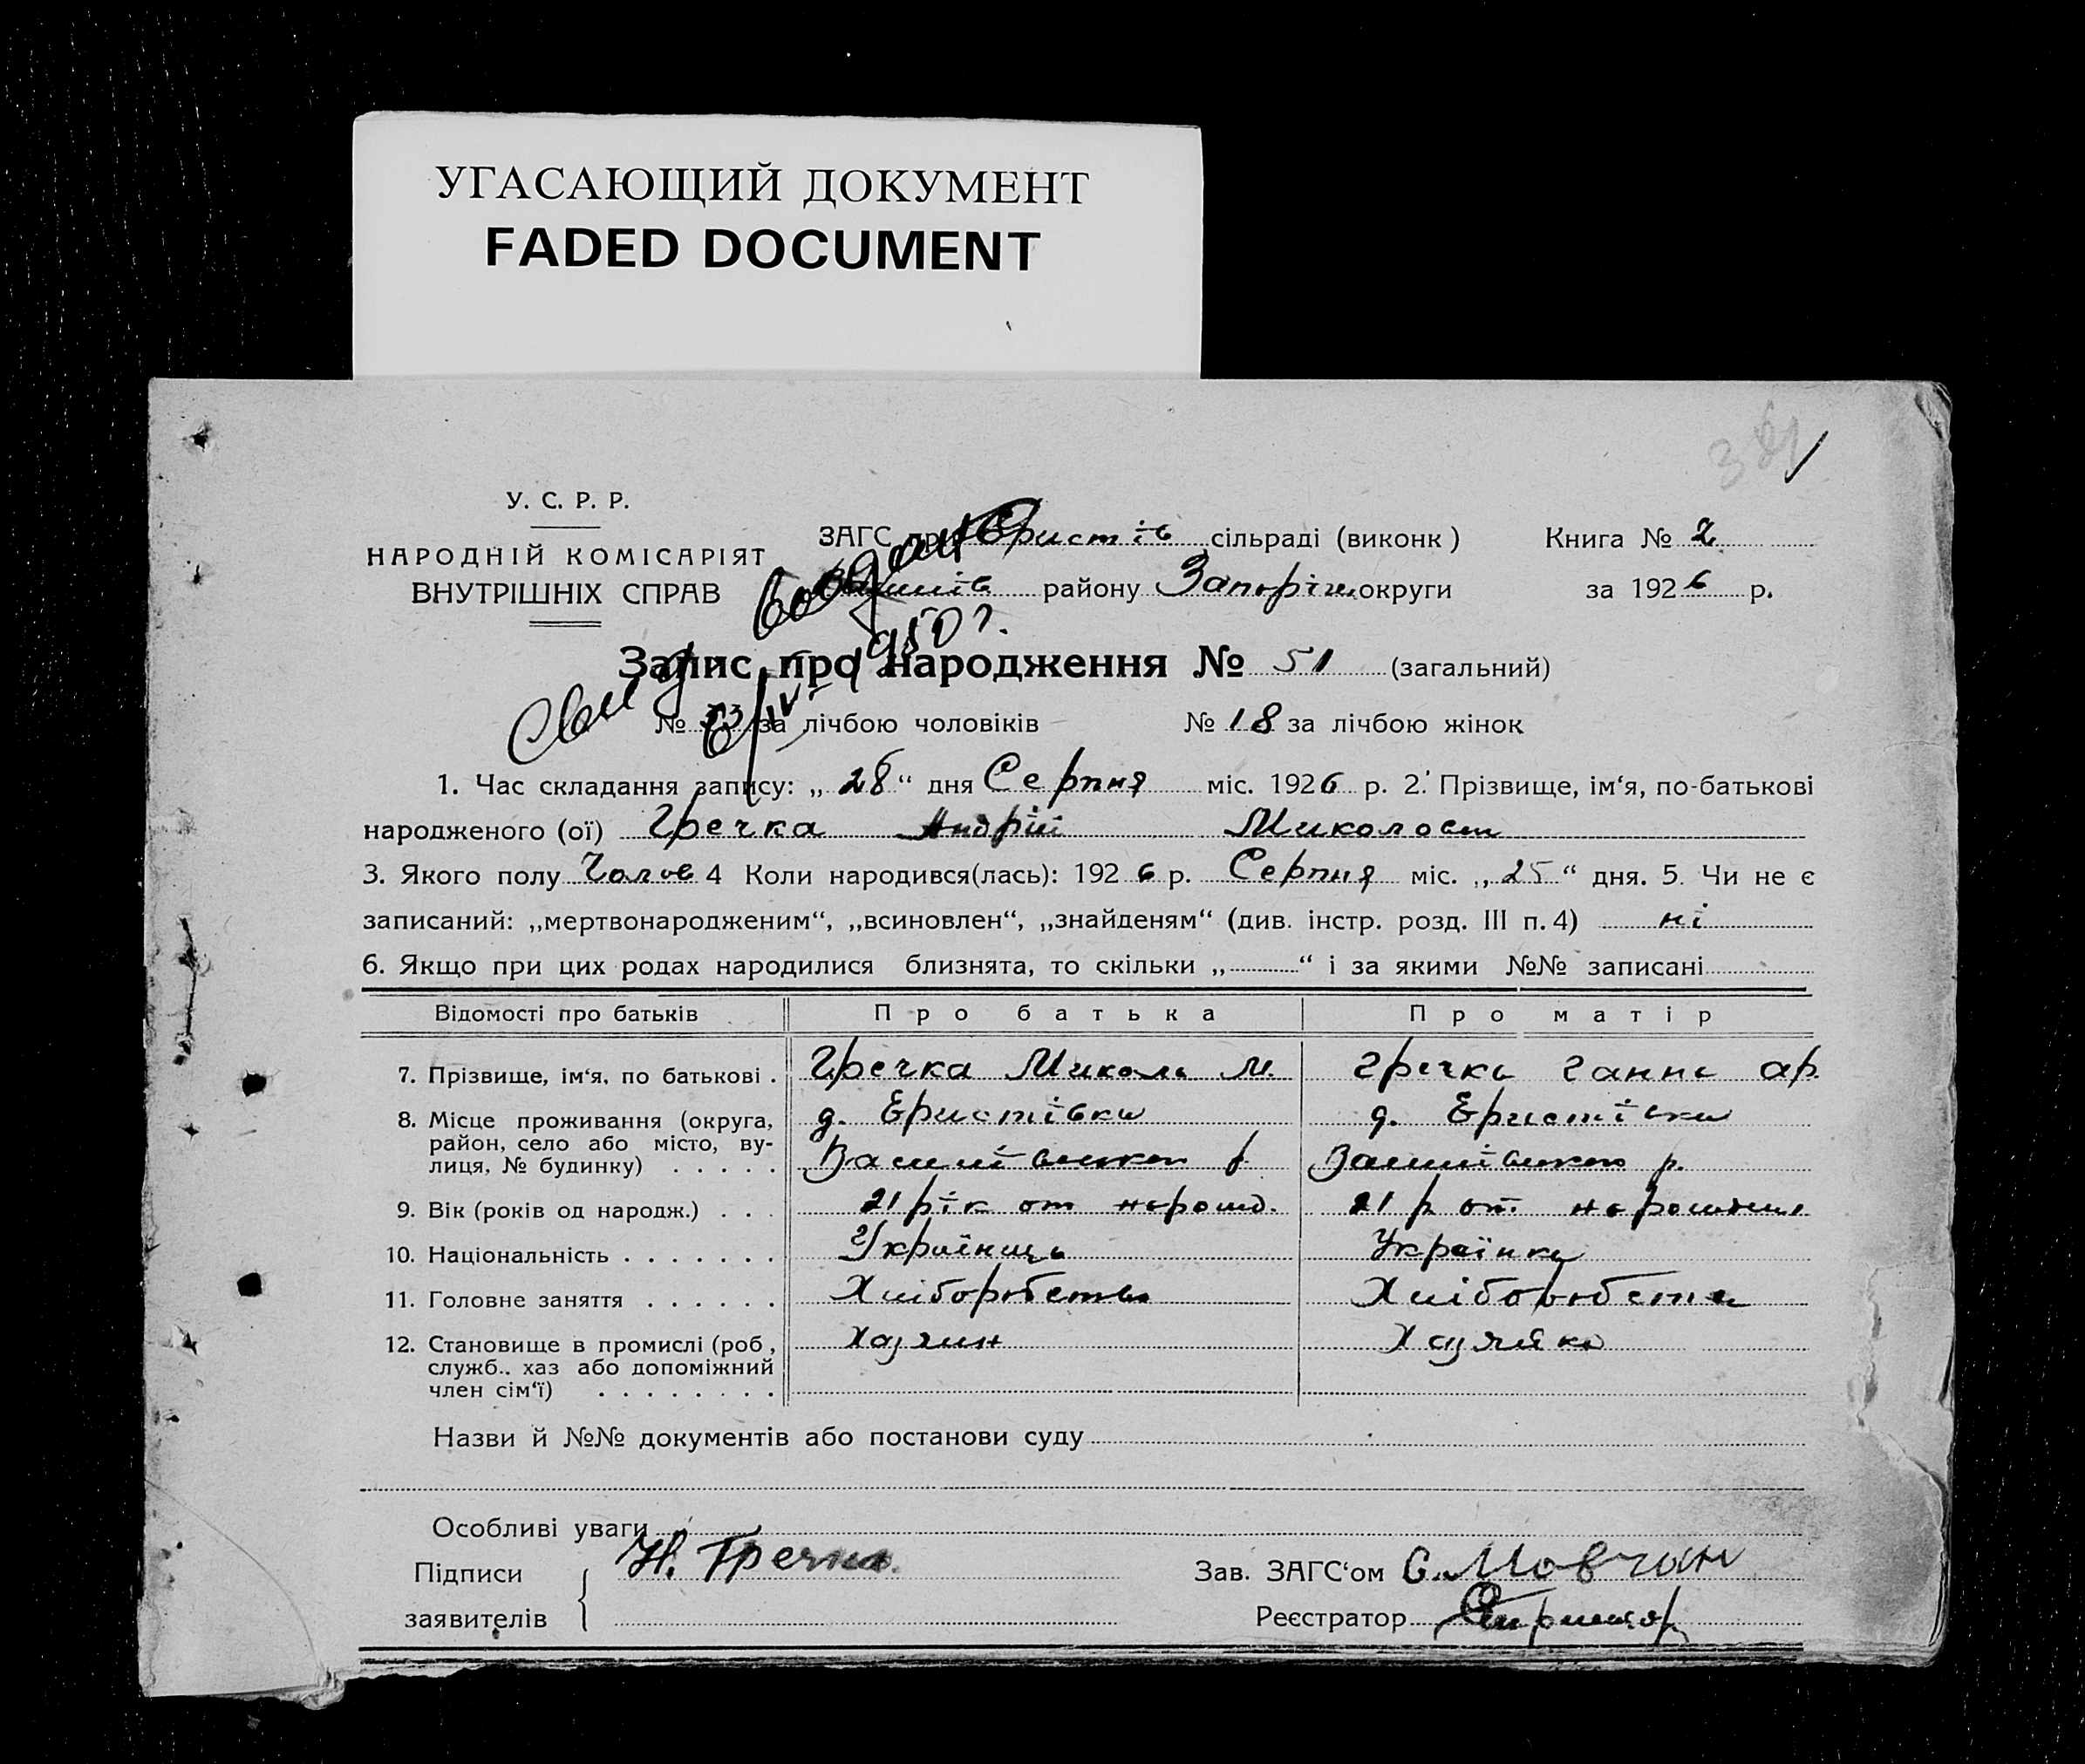 УГАСАЮЩИЙ ДОКУМЕНТ
FADED DOCUMENT
У. С. Р. Р.
НАРОДНІЙ КОМІСАРІЯТ
ВНУТРІШНІХ СПРАВ
ЗАГС при Еристів сільраді (виконк)
району Запоріж округи
Книга № 2
за 1926 р.
Свид выдано
1950 г.
Запис про народження № 51 (загальний)
№ 33 за лічбою чоловіків № 18 за лічбою жінок
1. Час складання запису: „ 28 “ дня Серпня міс. 1926 р. 2. Прізвище, ім‘я, по-батькові
народженого (ої) Гречка Андрій Миколаєв
3. Якого полу Чолов 4 Коли народився(лась): 1926 р. Серпня міс. „ 25 “ дня. 5. Чи не є
записаний: „мертвонародженим“, „всиновлен“, „знайденям“ (див. інстр. розд. III п. 4) ні
6. Якщо при цих родах народилися близнята, то скільки „ “ і за якими №№ записані
Відомості про батьків Про батька Про матір
7. Прізвище, ім‘я, по батькові . Гречка Микола М. Гречка Ганна ар.
8. Місце проживання (округа, район, село або місто, вулиця, № будинку) . . . . .
д. Еристівка д. Еристівка
р. р.
9. Вік (років од народж.) . . . 21 рік от нарожд. 21 р от
10. Національність . . . . . . . Українець Українка
11. Головне заняття . . . . . . Хліборобство Хліборобство
12. Становище в промислі (роб, служб.. хаз або допоміжний член сім‘ї) . . . . . . . .
Хазяин Хазяйка
Назви й №№ документів або постанови суду
Особливі уваги
Підписи
заявителів
Н. Гречка
Зав. ЗАГС‘ом С. Мовчан
Реєстратор